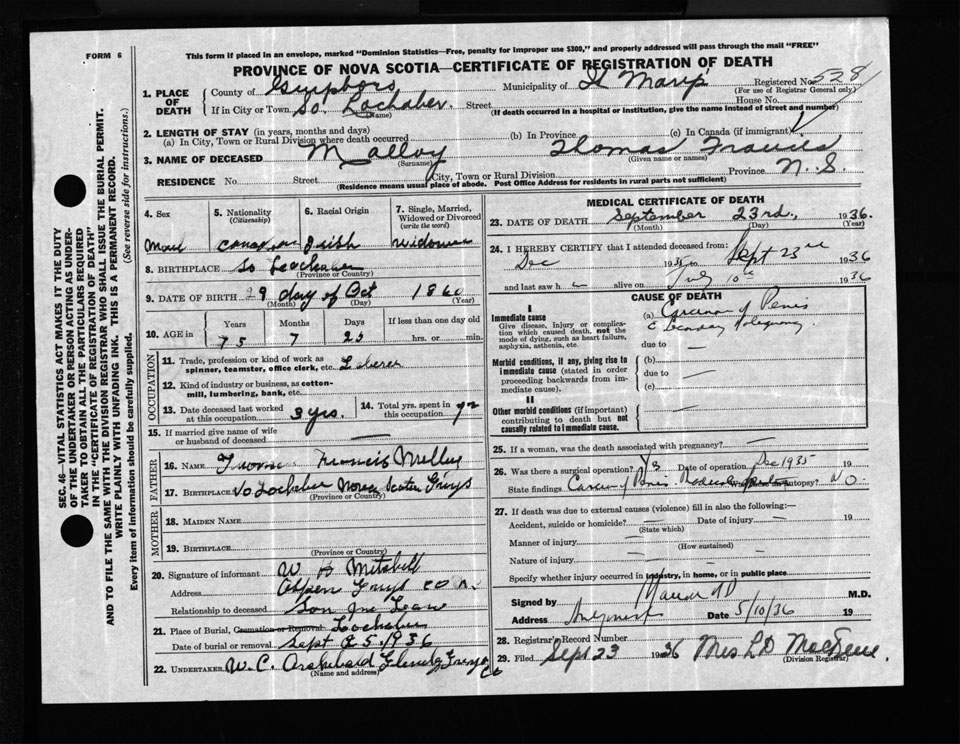 FORM 6
This form if placed in an envelope, marked "Dominion Statistics—Free, penalty for improper use $300," and properly addressed will pass through the mail "FREE"
PROVINCE OF NOVA SCOTIA—CERTIFICATE OF REGISTRATION OF DEATH
1. PLACE OF DEATH
County of Municipality of St Mary's Registered No. 528
(For use of Registrar General only)
If in City or Town So. Lochaber. Street House No.
(Name) (If death occurred in a hospital or institution, give the name instead of street and number)
2. LENGTH OF STAY (in years, months and days)
(a) In City, Town or Rural Division where death occurred (b) In Province (c) In Canada (if immigrant)
3. NAME OF DECEASED Malloy Thomas Francis
(Surname) (Given name or names)
RESIDENCE No. Street City, Town or Rural Division Province N. S.
(Residence means usual place of abode. Post Office Address for residents in rural parts not sufficient)
4. Sex
Male
5. Nationality
(Citizenship)
6. Racial Origin
Irish
7. Single, Married, Widowed or Divorced
(write the word)
8. BIRTHPLACE So Lochaber
(Province or Country)
9. DATE OF BIRTH 29 day of Oct 1860
(Month) (Day) (Year)
10. AGE in
Years Months Days If less than one day old
75 7 25 hrs. or min.
OCCUPATION
11. Trade, profession or kind of work as spinner, teamster, office clerk, etc.
12. Kind of industry or business, as cotton-mill, lumbering, bank, etc.
13. Date deceased last worked at this occupation 3 yrs.
14. Total yrs. spent in this occupation
15. If married give name of wife or husband of deceased —
FATHER
16. NAME Francis
17. BIRTHPLACE So Lochaber Nova Scotia Guys
(Province or Country)
MOTHER
18. MAIDEN NAME
19. BIRTHPLACE
(Province or Country)
20. Signature of informant W
Address Aspen Guys Co
Relationship to deceased Son Inc Law
21. Place of Burial, Cremation or Removal Lochaber
Date of burial or removal Sept 25. 1936
22. UNDERTAKER W. C. Archibald Glenelg Guys Co
(Name and address)
MEDICAL CERTIFICATE OF DEATH
23. DATE OF DEATH September 23rd, 1936.
(Month) (Day) (Year)
24. I HEREBY CERTIFY that I attended deceased from:
Dec 193 to Sept 23rd 1936
and last saw h alive on July 10th 1936
CAUSE OF DEATH
I
Immediate cause
Give disease, injury or complication which caused death, not the mode of dying, such as heart failure, asphyxia, asthenia, etc.
(a) of Penis
due to —
Morbid conditions, if any, giving rise to immediate cause (stated in order proceeding backwards from immediate cause).
(b)
due to —
(c)
II
Other morbid conditions (if important) contributing to death but not causally related to immediate cause.
25. If a woman, was the death associated with pregnancy? —
26. Was there a surgical operation? Yes Date of operation Dec 1935 19
State findings of Penis Was there an autopsy? No.
27. If death was due to external causes (violence) fill in also the following:—
Accident, suicide or homicide? — Date of injury — 19
(State which)
Manner of injury —
(How sustained)
Nature of injury —
Specify whether injury occurred in industry, in home, or in public place
Signed by M.D.
Address Date 5/10/36 19
28. Registrar's Record Number
29. Filed Sept 23 1936 Mrs L D
(Division Registrar)
SEC. 46—VITAL STATISTICS ACT MAKES IT THE DUTY
OF THE UNDERTAKER OR PERSON ACTING AS UNDER-
TAKER TO OBTAIN ALL THE PARTICULARS REQUIRED
IN THE "CERTIFICATE OF REGISTRATION OF DEATH"
AND TO FILE THE SAME WITH THE DIVISION REGISTRAR WHO SHALL ISSUE THE BURIAL PERMIT.
WRITE PLAINLY WITH UNFADING INK. THIS IS A PERMANENT RECORD.
(See reverse side for instructions.)
Every item of information should be carefully supplied.